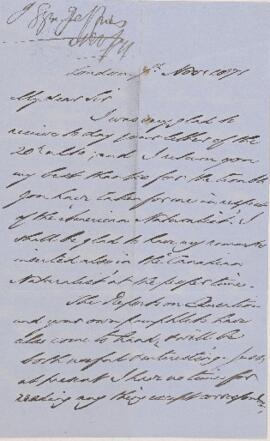 London, Novr 1871
My dear Sir
I was very glad to
receive to day your letter of the
20th ulto; and I return you
my best thanks for the trouble
you have taken for me in respect
of the American Naturalist. I
shall be glad to have my remarks
inserted also in the Canadian
Naturalist at the proper time.
The Report on Education
and your own pamphlet have
also come to hand, & will be
both useful & interesting; but
at present I have no time for
reading any thing except